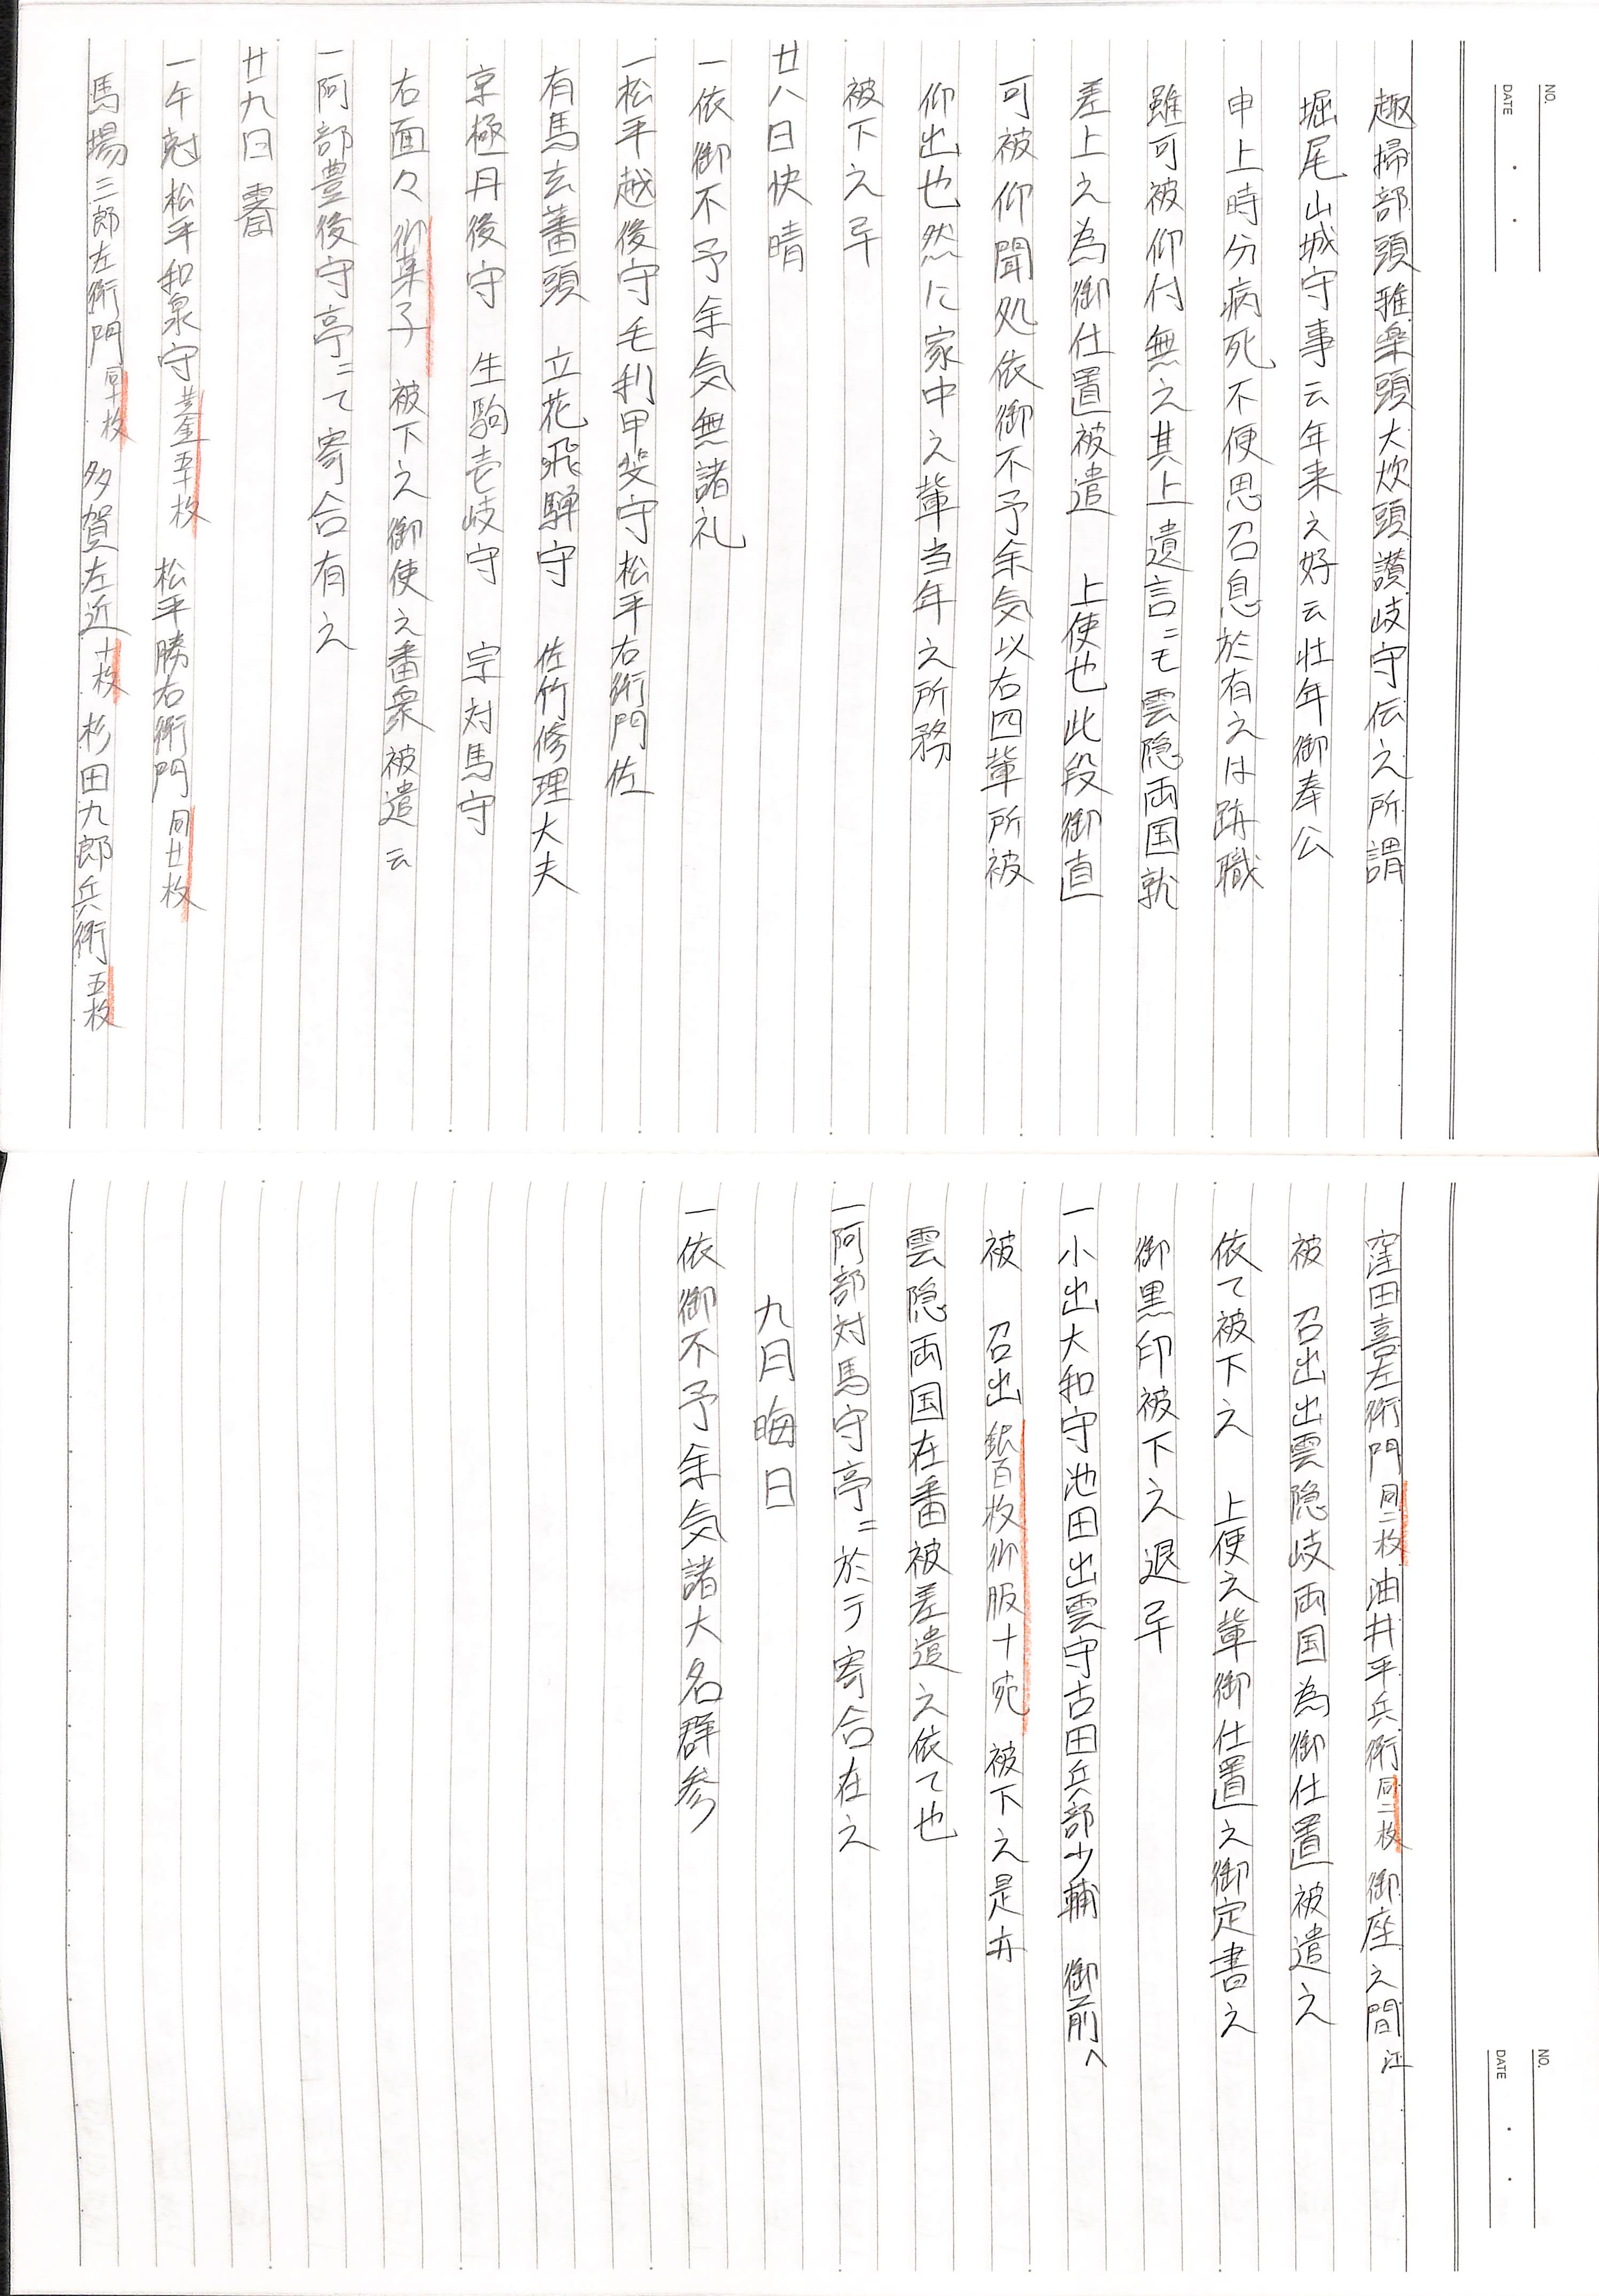 NO.
DATE
趣掃部頭雅楽頭大炊頭讃岐守伝之所謂
堀尾山城守事云年来之好云壮年御奉公
申上時分病死不便思召息於有之は跡職
雖可被仰付無之其上遺言ニモ雲隠両国就
差上之為御仕置被遣 上使也此段御直
可被仰聞処依御不予余気以右四輩所被
仰出也然に家中之輩当年之所務
被下之畢
廿八日快晴
一依御不予余気無諸礼
一松平越後守毛利甲斐守松平右衛門佐
有馬玄蕃頭 立花飛騨守 佐竹修理大夫
京極丹後守 生駒壱岐守 宗対馬守
右面々御菓子 被下之御使之番衆被遣云
一阿部豊後守亭ニて寄合有之
廿九日
一午剋松平和泉守黄金五十枚 松平勝右衛門同廿枚
馬場三郎左衛門同十枚 多賀左近十枚 杉田九郎兵衛五枚
NO.
DATE
窪田喜左衛門同二枚油井平兵衛同二枚 御座之間江
被 召出出雲隠岐両国為御仕置被遣之
依て被下之 上使之輩御仕置之御定書之
御黒印被下之退畢
一小出大和守池田出雲守古田兵部少輔 御前へ
被 召出銀百枚御服十宛 被下之是亦
雲隠両国在番被差遣之依て也
一阿部対馬守亭ニ於テ寄合在之
九月晦日
一依御不予余気諸大名群参